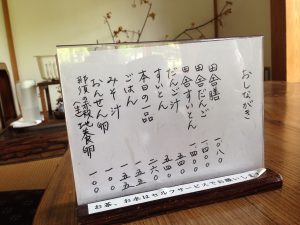 おしながき
田舎膳 一〇八〇
田舎だんご 四〇〇
田舎すいとん 四〇〇
だんご汁 五四〇
すいとん 五四〇
本日の一品 二六〇
ごはん 一五五
みそ汁 一五五
おんせん卵 一〇〇
お茶、お水はセルフサービスでお願いします